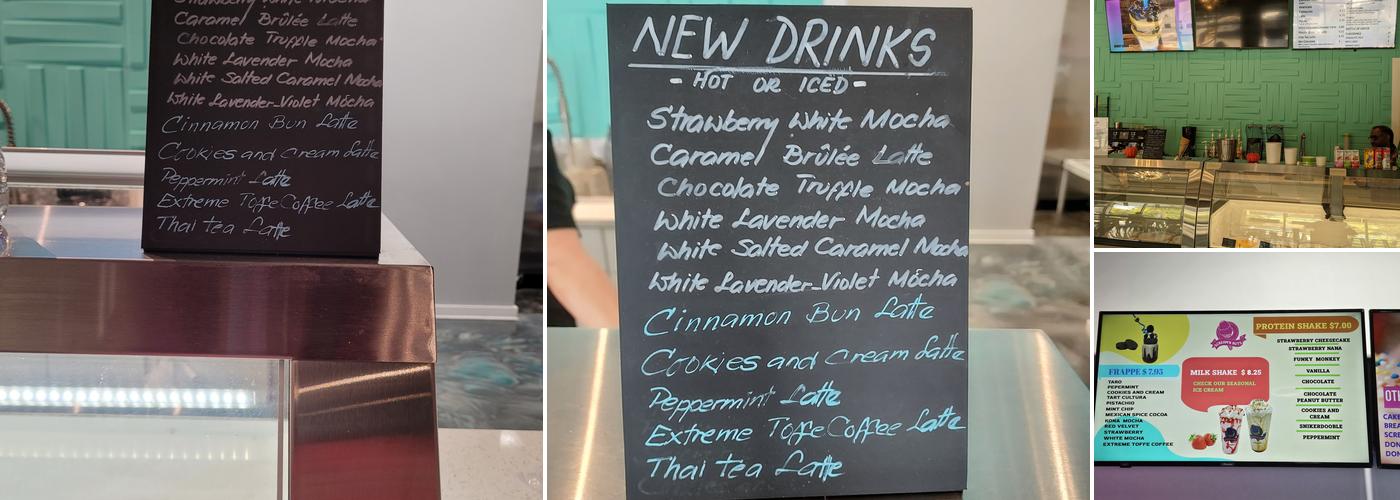 Caramel Brûlée Latte
Chocolate Truffle Mocha
White Lavender Mocha
White Salted Caramel Mocha
White Lavender-Violet Mocha
Cinnamon Bun Latte
Cookies and Cream Latte
Peppermint Latte
Extreme Toffe Coffee Latte
Thai tea Latte
NEW DRINKS
- HOT OR ICED -
Strawberry White Mocha
Caramel Brûlée Latte
Chocolate Truffle Mocha
White Lavender Mocha
White Salted Caramel Mocha
White Lavender-Violet Mocha
Cinnamon Bun Latte
Cookies and Cream Latte
Peppermint Latte
Extreme Toffe Coffee Latte
Thai tea Latte
FRAPPE $ 7.95
TARO
PEPERMINT
COOKIES AND CREAM
TART CULTURA
PISTACHIO
MINT CHIP
MEXICAN SPICE COCOA
KONA MOCHA
RED VELVET
STRAWBERRY
WHITE MOCHA
EXTREME TOFFE COFFEE
MILK SHAKE $ 8.25
CHECK OUR SEASONAL
ICE CREAM
PROTEIN SHAKE $7.00
STRAWBERRY CHEESECAKE
STRAWBERRY NANA
FUNKY MONKEY
VANILLA
CHOCOLATE
CHOCOLATE
PEANUT BUTTER
COOKIES AND
CREAM
SNIKERDOODLE
PEPPERMINT